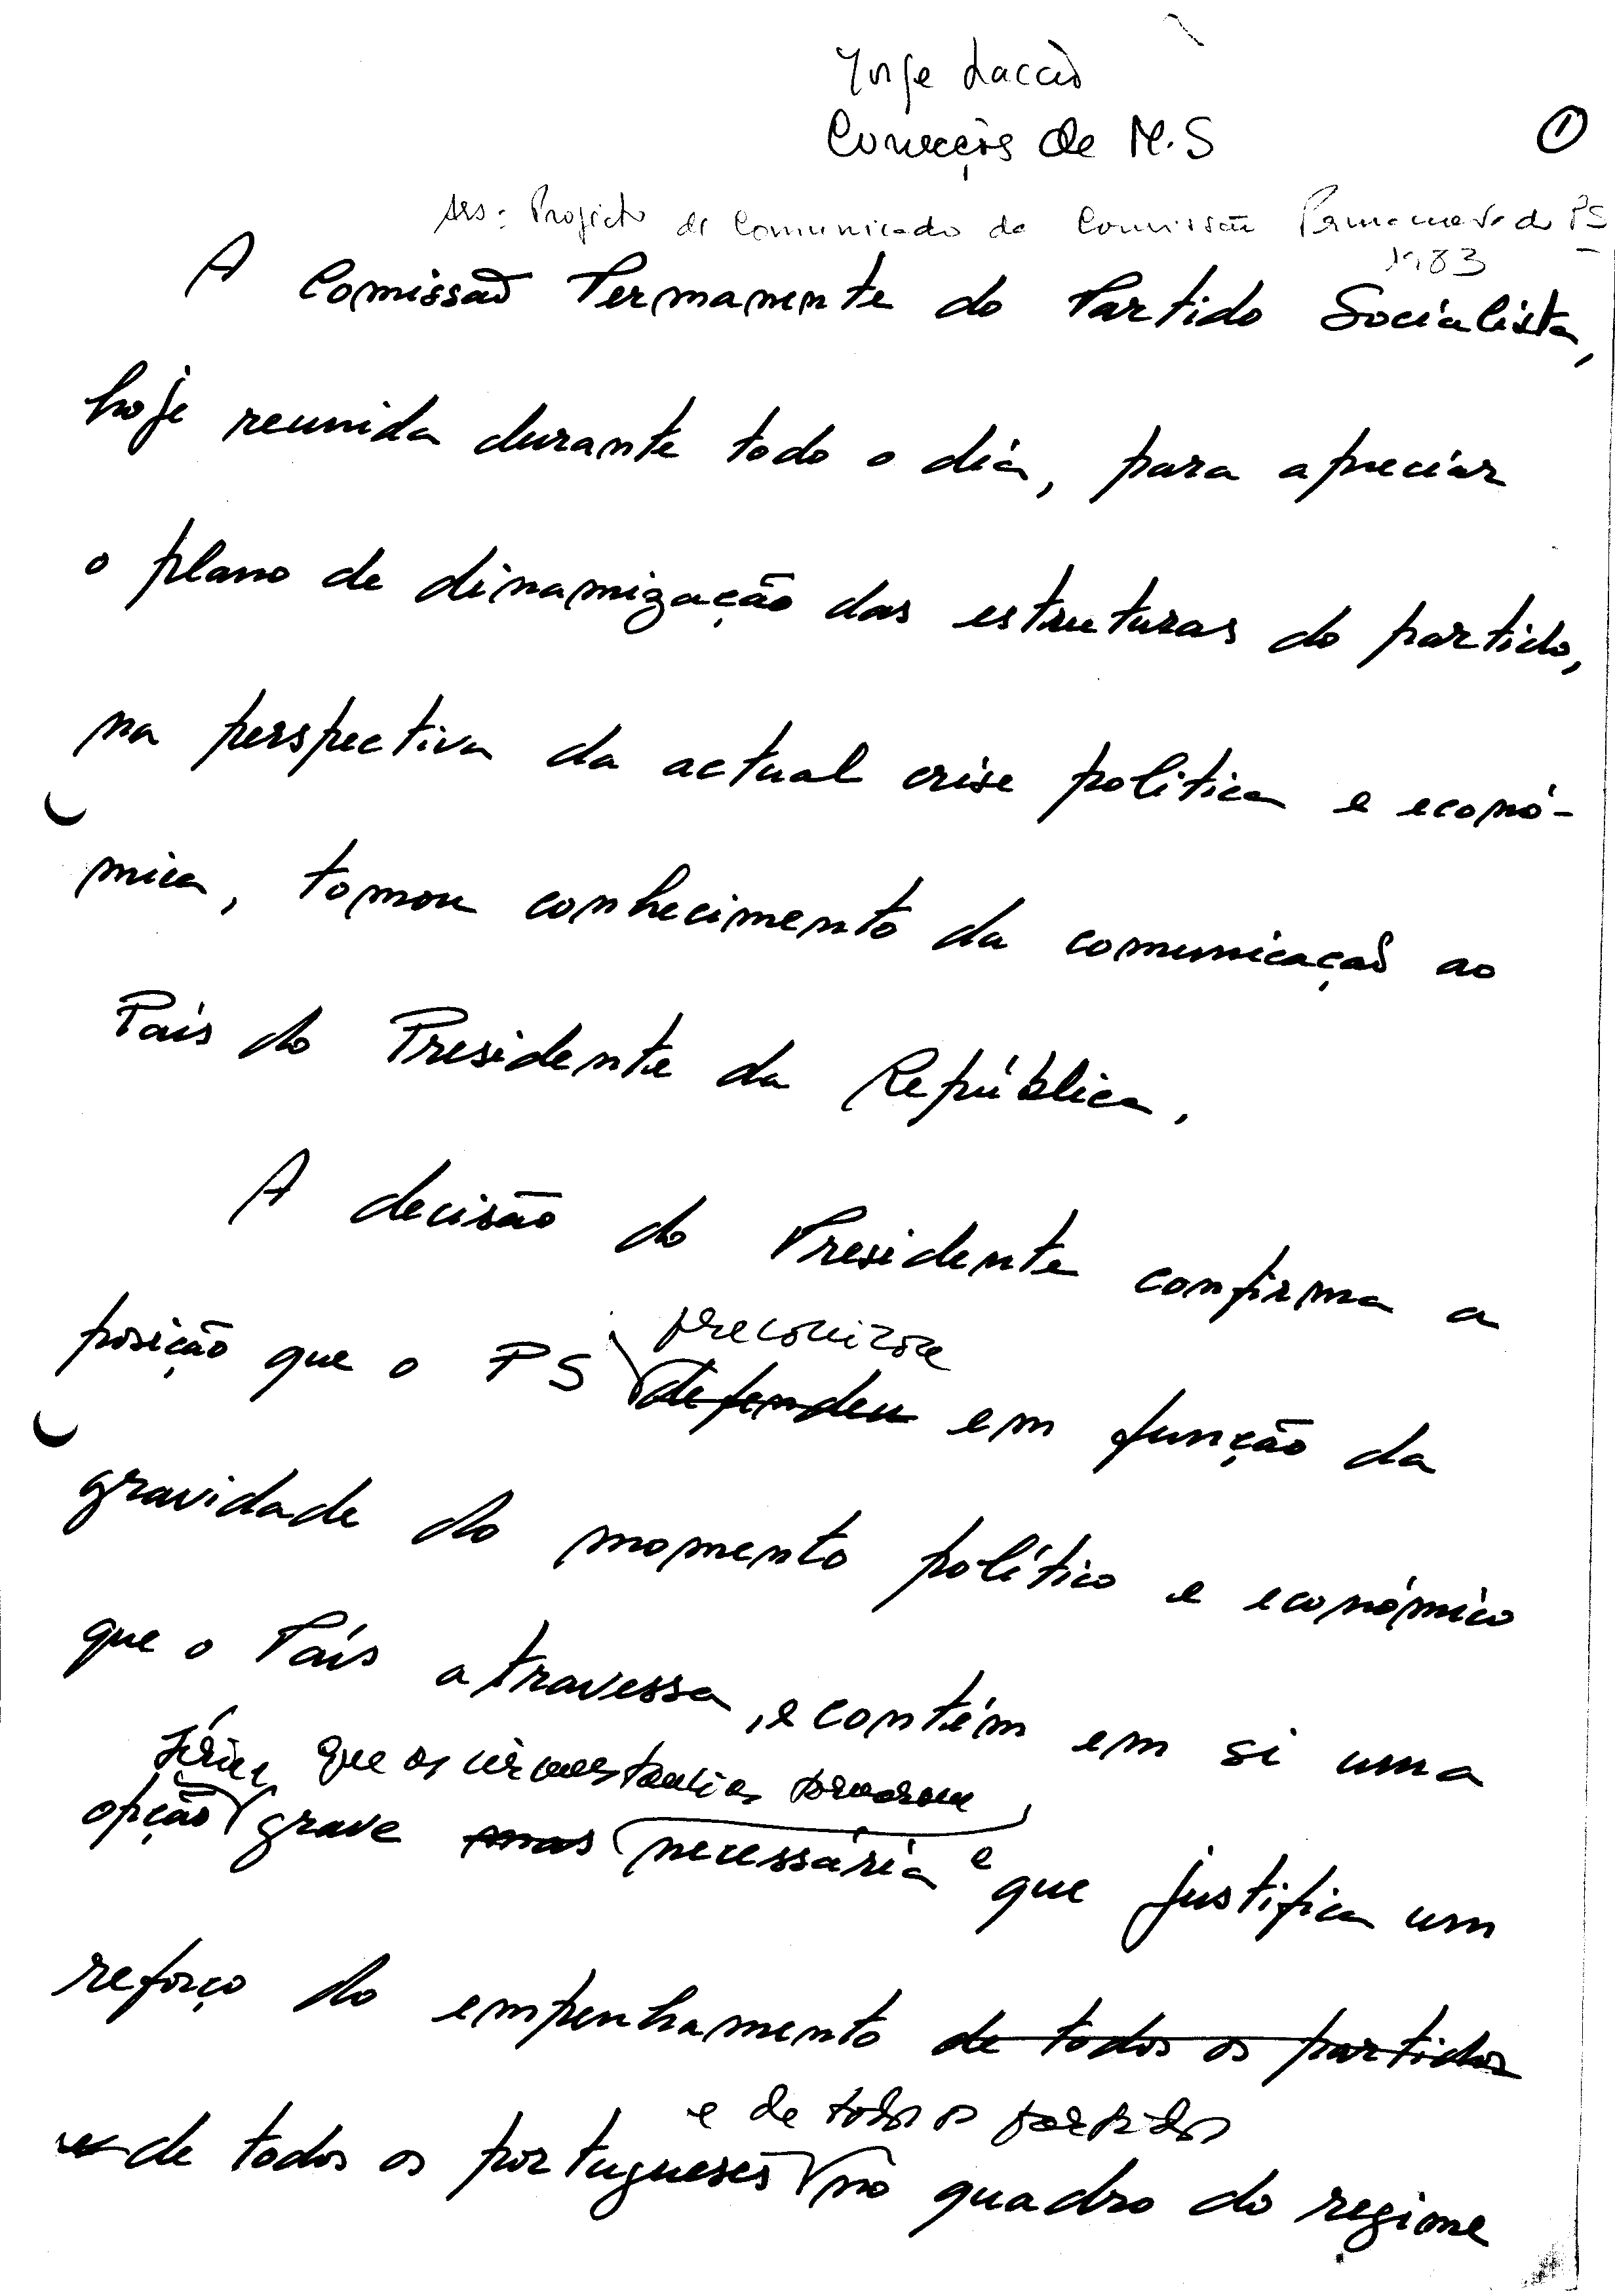 Jorge Lacão
Correcções de M.S
①
Ass: Projecto de Comunicado da Comissão Permanente do PS
1983
A Comissão Permanente do Partido Socialista,
hoje reunida durante todo o dia, para apreciar
o plano de dinamização das estruturas do partido,
na perspectiva da actual crise política e econó-
mica, tomou conhecimento da comunicação ao
País do Presidente da República.
A decisão do Presidente confirma a
preconizou
posição que o PS defendeu em função da
gravidade do momento político e económico
que o País atravessa, e contém em si uma
séria, que as circunstancias tornaram
opção grave mas necessária e que justifica um
reforço do empenhamento de todos os partidos
e de todos os partidos
e de todos os portugueses no quadro do regime